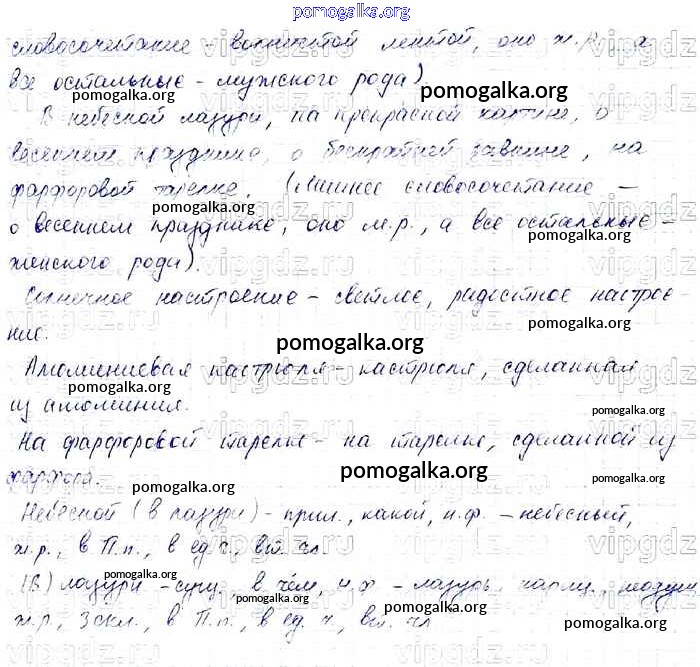 pomogalka.org
словосочетание – волнистой лентой, оно ж.р., а
все остальные – мужского рода)
pomogalka.org
pomogalka.org
В небесной лазури, на прекрасной картине, о
весеннем празднике, о бескрайней равнине, на
фарфоровой тарелке. (Лишнее словосочетание –
pomogalka.org
о весеннем празднике, оно м.р., а все остальные –
pomogalka.org
женского рода).
Солнечное настроение – светлое, радостное настрое-
pomogalka.org
ние.
pomogalka.org
Алюминиевая кастрюля – кастрюля, сделанная
pomogalka.org
из алюминия.
pomogalka.org
На фарфоровой тарелке – на тарелке, сделанной из
pomogalka.org
фарфора.
pomogalka.org
pomogalka.org
Небесной (в лазури) – прил., какой, н.ф. – небесный,
ж.р., в П.п., в ед.ч., вт. чл.
pomogalka.org
(В) лазури – сущ., в чём, н.ф. – лазурь, нариц., неодуш.
pomogalka.org
pomogalka.org
pomogalka.org
ж.р., 3 скл., в П.п., в ед.ч., вт. чл
pomogalka.org
vipgdz.ru